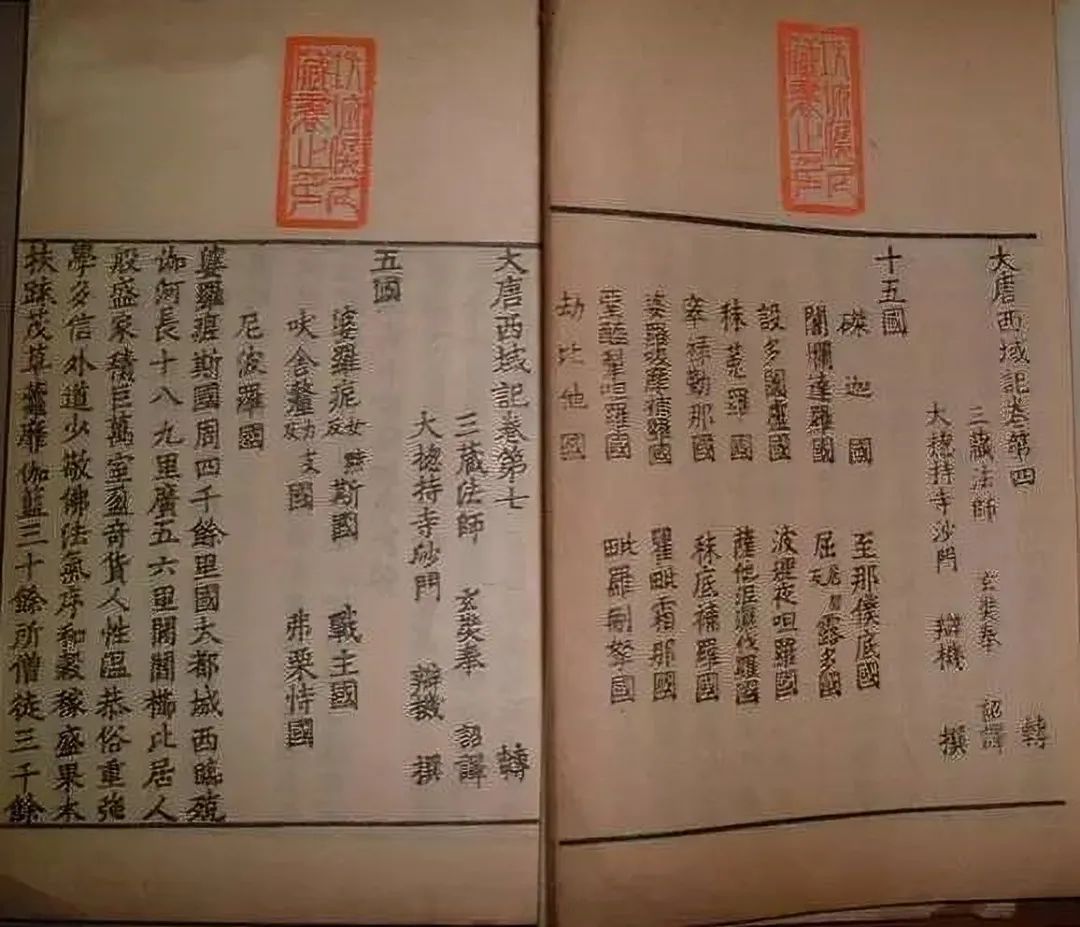 大唐西域記卷第四 轉
三藏法師 玄奘奉 詔譯
大揔持寺沙門 辯機 撰
十五國
磔迦國 至那僕底國
闍爛達羅國 屈露多國
設多圖盧國 波理夜呾羅國
秣菟羅國 薩他泥濕伐羅國
窣祿勤那國 秣底補羅國
婆羅摩補羅國 瞿毗霜那國
堊醯掣呾羅國 毗羅刪拏國
劫比他國
大唐西域記卷第七 轉
三藏法師 玄奘奉 詔譯
大揔持寺沙門 辯機 撰
五國
婆羅痆女黠反斯國 戰主國
吠舍釐力支反國 弗栗恃國
尼波羅國
婆羅痆斯國周四千餘里國大都城西臨殑
伽河長十八九里廣五六里閭閻櫛比居人
殷盛家積巨萬室盈奇貨人性溫恭俗重強
學多信外道少敬佛法氣序和穀稼盛果木
扶踈茂草靃靡伽藍三十餘所僧徒三千餘
藏書之印
藏書之印